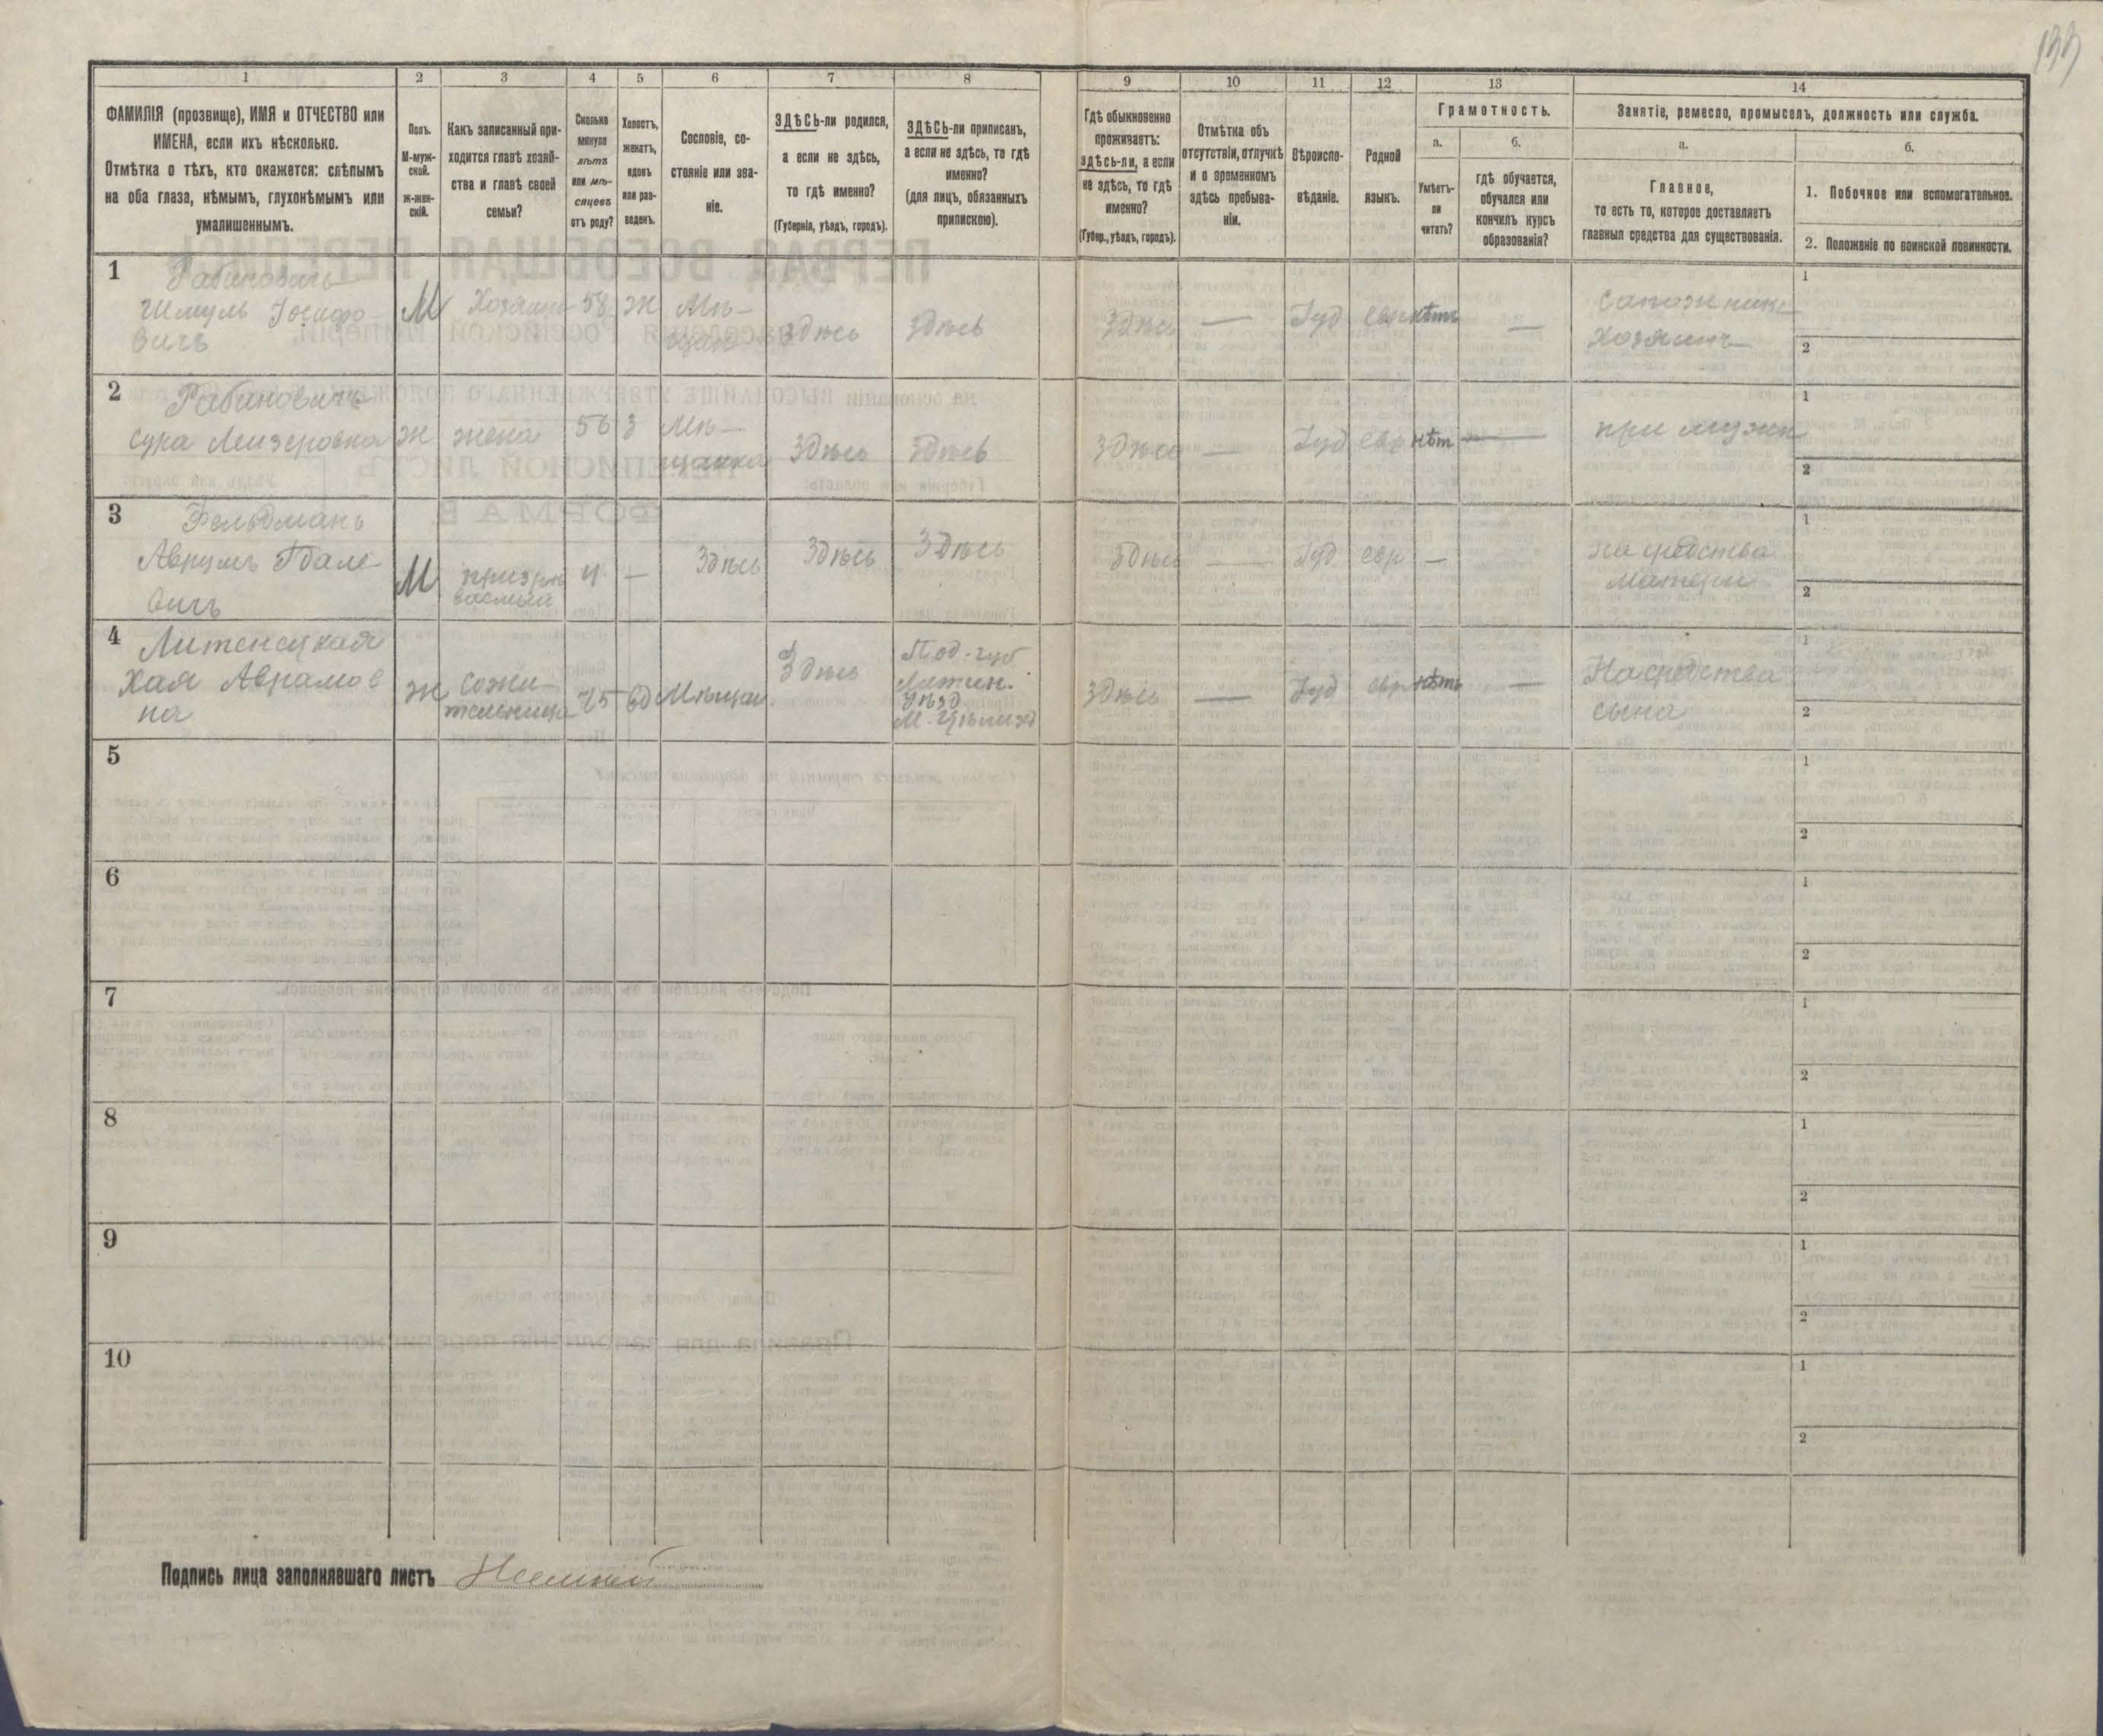 199
1 2 3 4 5 6 7 8 9 10 11 12 13 14
ФАМИЛІЯ (прозвище), ИМЯ и ОТЧЕСТВО или
ИМЕНА, если ихъ нѣсколько.
Отмѣтка о тѣхъ, кто окажется: слѣпымъ
на оба глаза, нѣмымъ, глухонѣмымъ или
умалишеннымъ.
Полъ.
М-муж-
ской.
Ж-жен-
скій.
Какъ записанный при-
ходится главѣ хозяй-
ства и главѣ своей
семьи?
Сколько
минуло
лѣтъ
или мѣ-
сяцевъ
отъ роду?
Холостъ,
женатъ,
вдовъ
или раз-
веденъ.
Сословіе, со-
стояніе или зва-
ніе.
ЗДѢСЬ-ли родился,
а если не здѣсь,
то гдѣ именно?
(Губернія, уѣздъ, городъ).
ЗДѢСЬ-ли приписанъ,
а если не здѣсь, то гдѣ
именно?
(для лицъ, обязанныхъ
припискою).
Гдѣ обыкновенно
проживаетъ:
здѣсь-ли, а если
не здѣсь, то гдѣ
именно?
(Губер., уѣздъ, городъ).
Отмѣтка объ
отсутствіи, отлучкѣ
и о временномъ
здѣсь пребыва-
ніи.
Вѣроиспо-
вѣданіе.
Родной
языкъ.
Грамотность.
а.
Умѣетъ-
ли
читать?
б.
гдѣ обучается,
обучался или
кончилъ курсъ
образованія?
Занятіе, ремесло, промыселъ, должность или служба.
а.
Главное,
то есть то, которое доставляетъ
главныя средства для существованія.
б.
1. Побочное или вспомогательное.
2. Положеніе по воинской повинности.
1
Рабиновичъ
Шмуль Іосифо-
вичъ
М
Хозяинъ
58
Ж
Мѣ-
щан
Здѣсь
Здѣсь
Здѣсь
—
Іуд
евр
нѣтъ
—
сапожникъ
Хозяинъ
1
2
2
Рабиновичъ
Сура Лейзеровна
Ж
жена
56
З
Мѣ-
щанка
Здѣсь
Здѣсь
Здѣсь
—
Іуд
евр
нѣт
—
при мужѣ
1
2
3
Фельдманъ
Аврумъ Гдале-
вичъ
М
призрѣ
ваемый
4
—
Здѣсь
Здѣсь
Здѣсь
Здѣсь
—
Іуд
евр
—
на средства
матери
1
2
4
Хая Аврамов
на
Ж
сожи-
тельница
75
вд
Мѣщан
Здѣсь
Под. губ
уѣзд
Здѣсь
—
Іуд
евр
нѣтъ
—
На средства
сына
1
2
5
1
2
6
1
2
7
1
2
8
1
2
9
1
2
10
1
2
Подпись лица заполнявшаго листъ